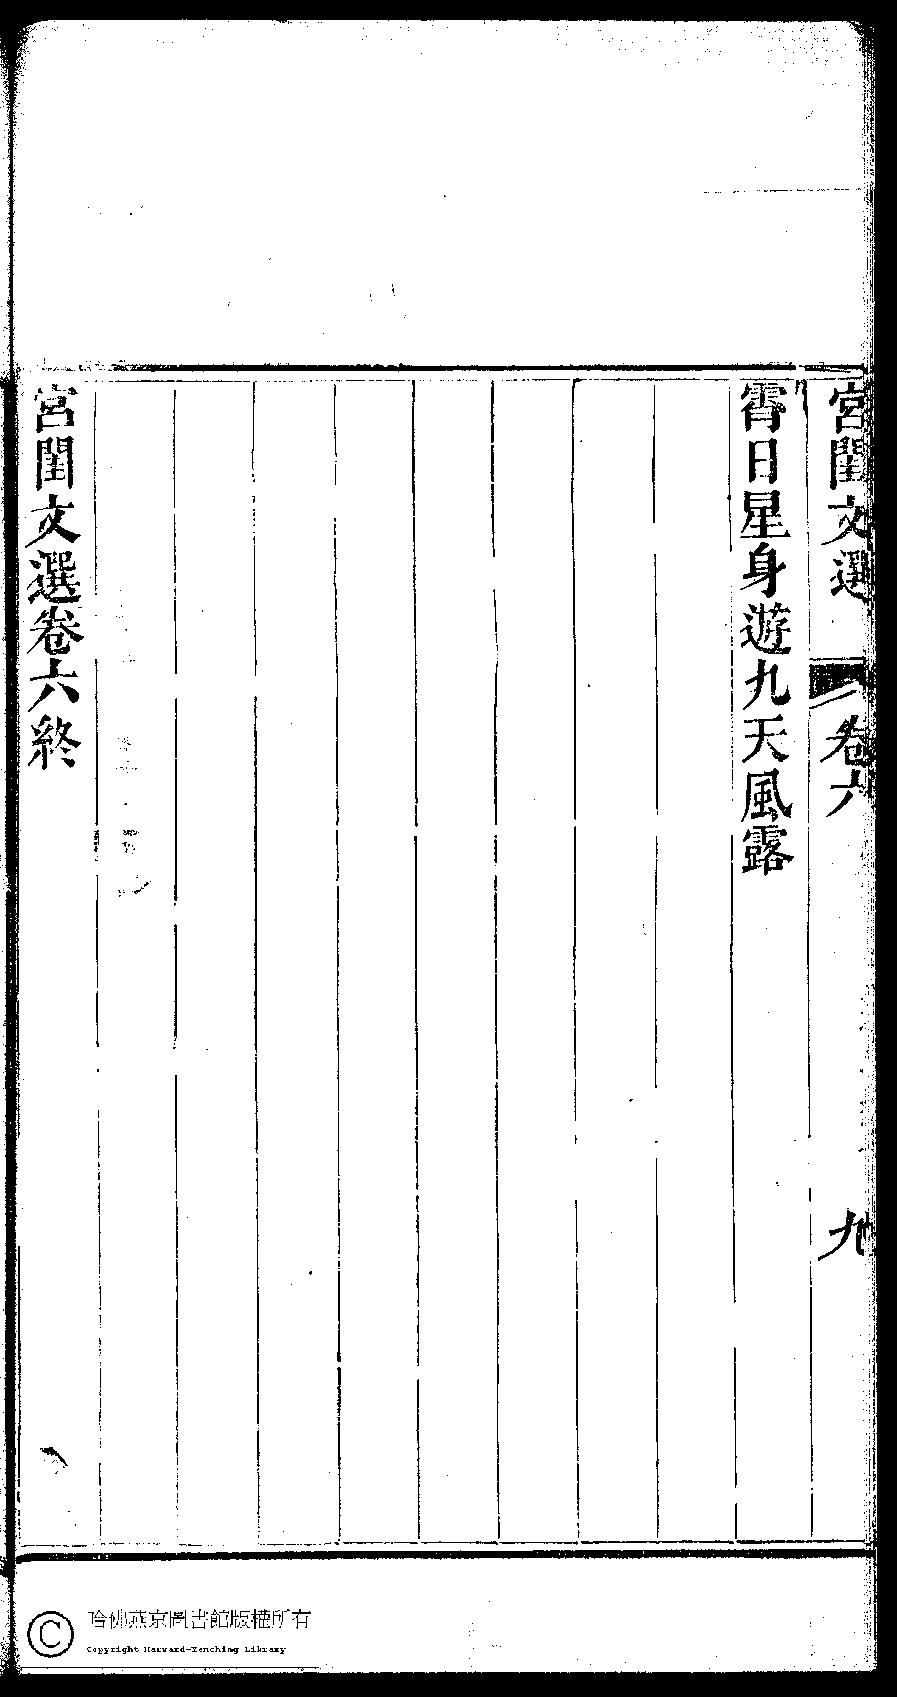 宮閨文選
卷六
九
霄日星身遊九天風露
宮閨文選卷六終
哈佛燕京圖書館版權所有
Copyright Harvard-Yenching Library